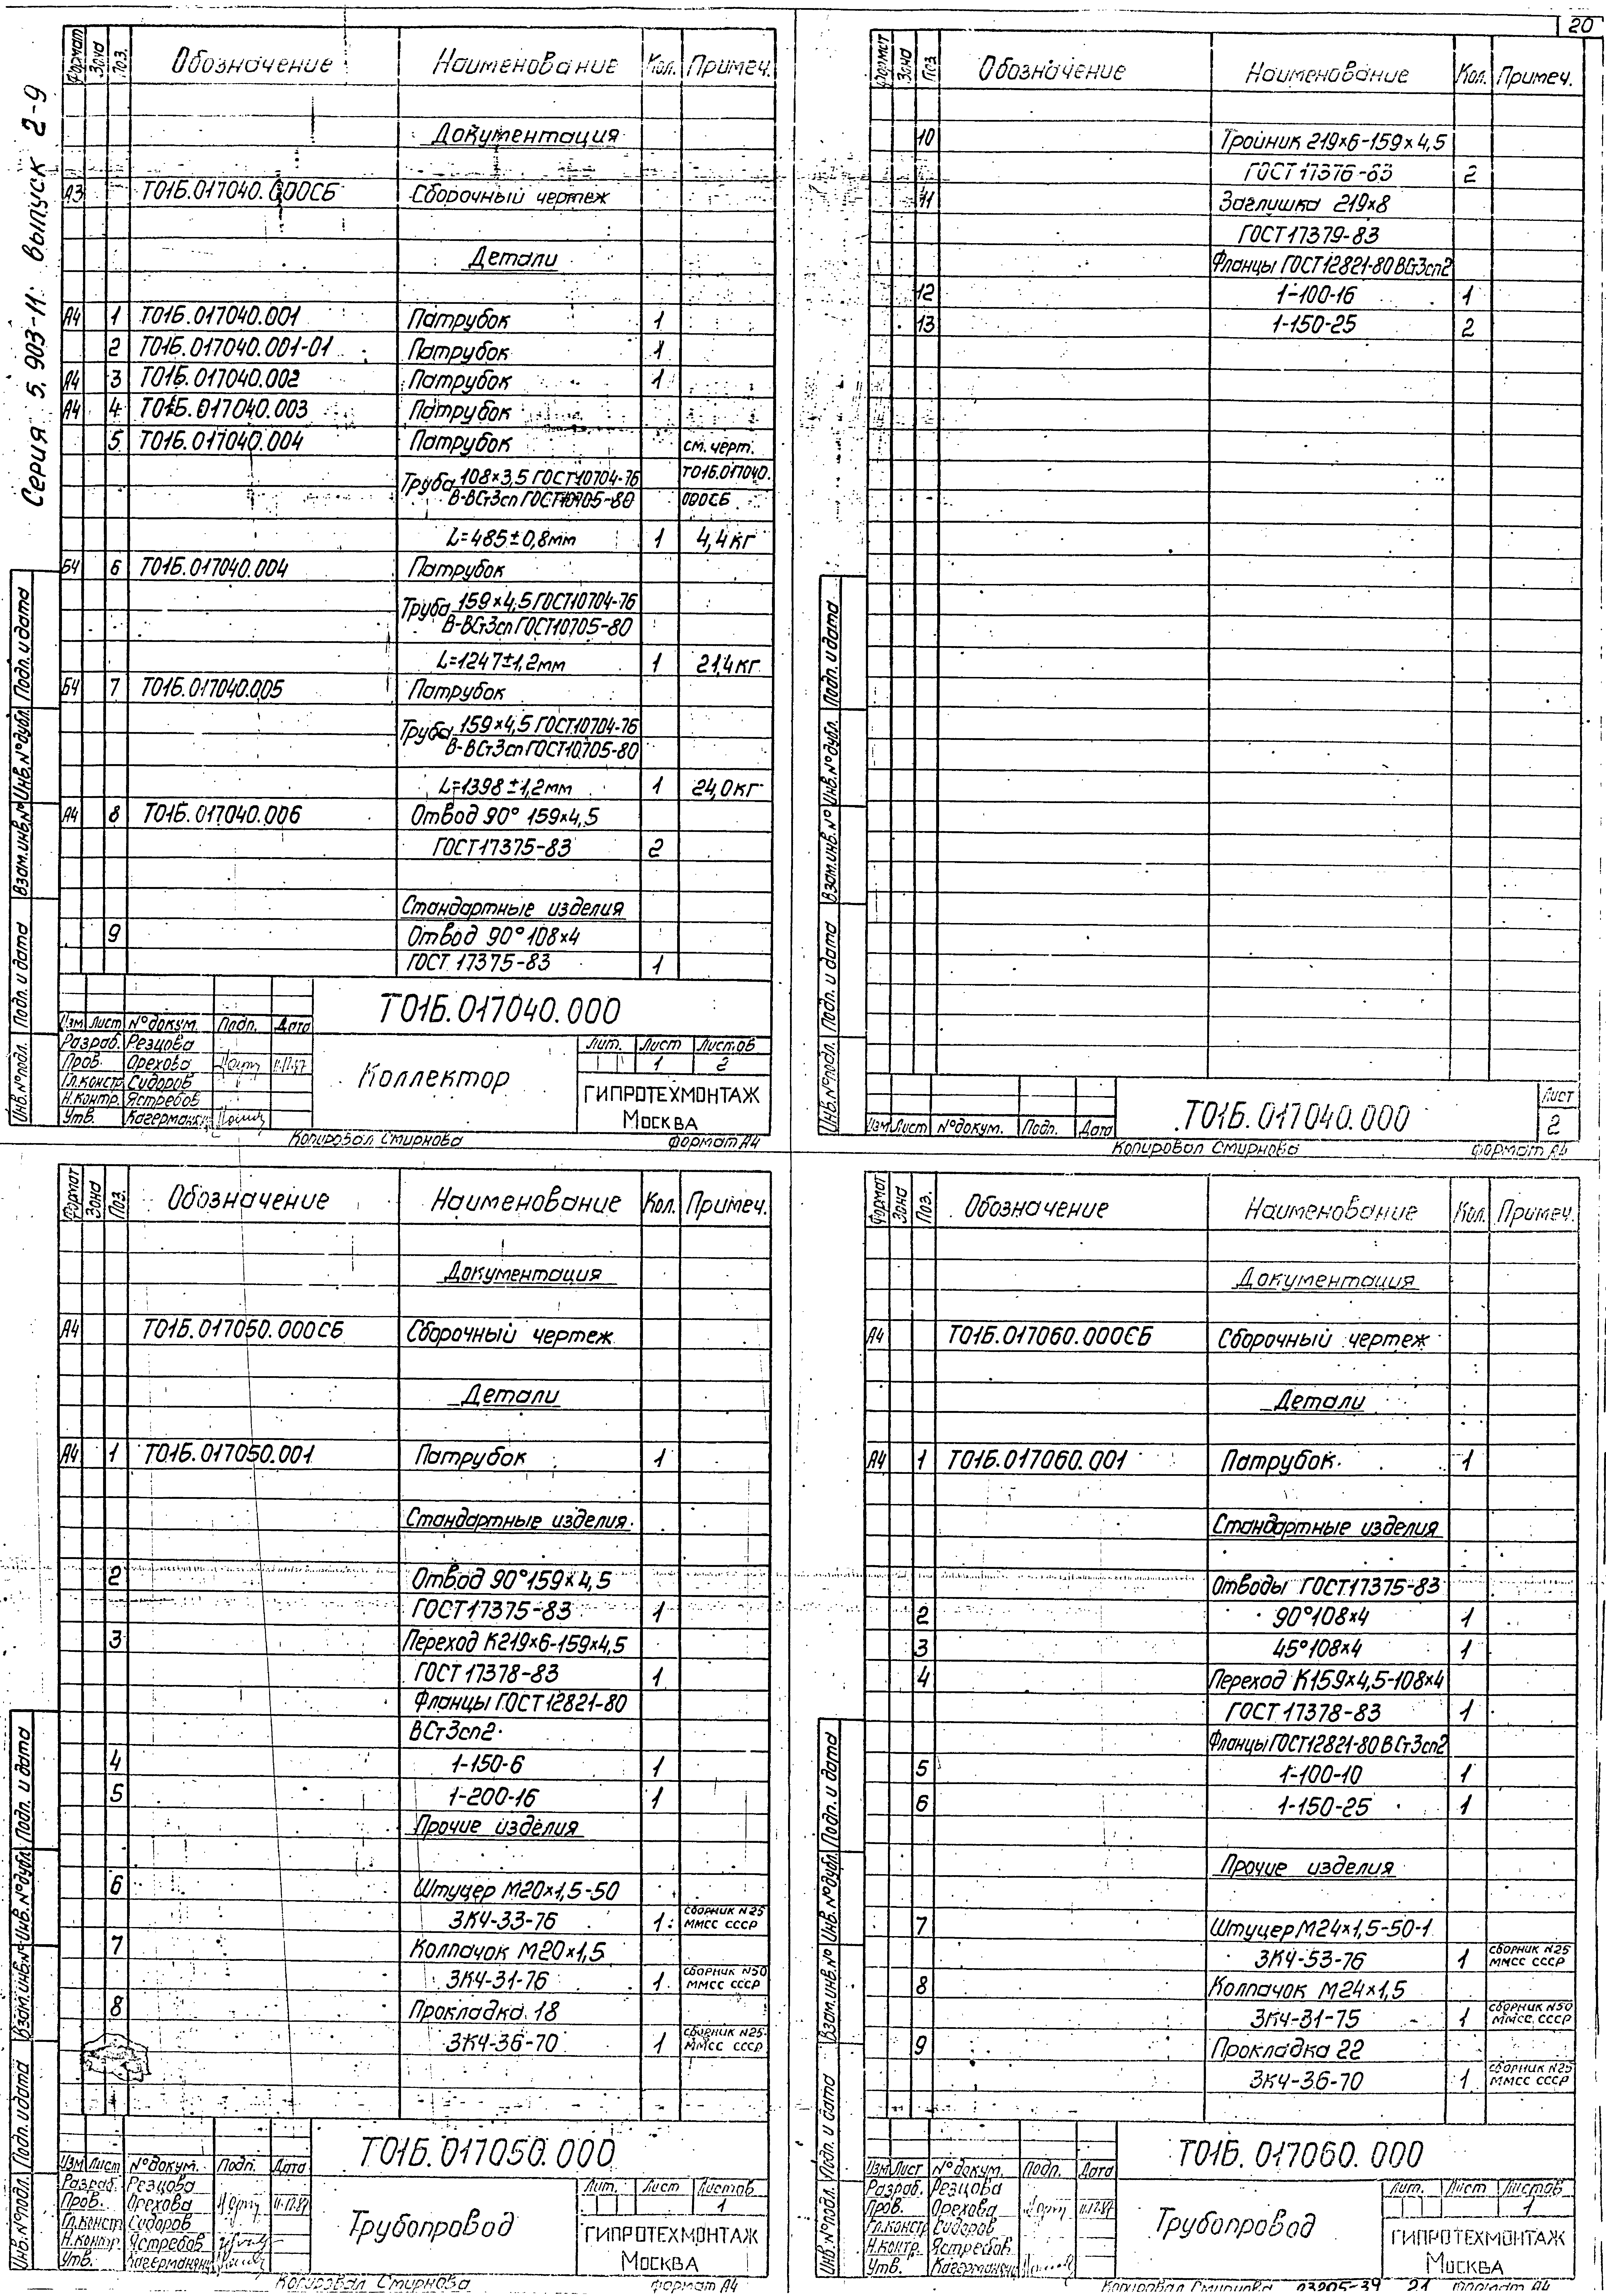 20
Серия 5.903-11. выпуск 2-9
Формат Зона Поз. Обозначение Наименование Кол. Примеч.
Документация
А3 Т01Б.017040.000СБ Сборочный чертеж
Детали
А4 1 Т01Б.017040.001 Патрубок 1
2 Т01Б.017040.001-01 Патрубок 1
А4 3 Т01Б.017040.002 Патрубок 1
А4 4 Т01Б.017040.003 Патрубок
5 Т01Б.017040.004 Патрубок см. черт.
Труба 108×3,5 ГОСТ10704-76 Т01Б.017040.
В-ВСт3сп ГОСТ10705-80 000СБ
L=485±0,8мм 1 4,4кг
Б4 6 Т01Б.017040.004 Патрубок
Труба 159×4,5 ГОСТ10704-76
В-ВСт3сп ГОСТ10705-80
L=1247±1,2мм 1 21,4кг
Б4 7 Т01Б.017040.005 Патрубок
Труба 159×4,5 ГОСТ10704-76
В-ВСт3сп ГОСТ10705-80
L=1398±1,2мм 1 24,0кг
А4 8 Т01Б.017040.006 Отвод 90° 159×4,5
ГОСТ17375-83 2
Стандартные изделия
9 Отвод 90° 108×4
ГОСТ 17375-83 1
Инв.№подл. Подп. и дата Взам.инв.№ Инв.№дубл. Подп. и дата
Т01Б.017040.000
Изм Лист №докум. Подп. Дата
Разраб. Резцова
Пров. Орехова 11.12.87
Гл.констр Сидоров
Н.контр. Ястребов
Утв.
Коллектор
Лит. Лист Листов
1 2
ГИПРОТЕХМОНТАЖ
Москва
Копировал Смирнова формат А4
Формат Зона Поз. Обозначение Наименование Кол. Примеч.
10 Тройник 219×6-159×4,5
ГОСТ 17376-83 2
11 Заглушка 219×8
ГОСТ17379-83
Фланцы ГОСТ12821-80 ВСт3сп2
12 1-100-16 1
13 1-150-25 2
Инв.№подл. Подп. и дата Взам.инв.№ Инв.№дубл. Подп. и дата
Изм Лист №докум. Подп. Дата
Т01Б.017040.000
Лист
2
Копировал Смирнова формат А4
Формат Зона Поз. Обозначение Наименование Кол. Примеч.
Документация
А4 Т01Б.017050.000СБ Сборочный чертеж
Детали
А4 1 Т01Б.017050.001 Патрубок 1
Стандартные изделия
2 Отвод 90°159×4,5
ГОСТ17375-83 1
3 Переход К219×6-159×4,5
ГОСТ 17378-83 1
Фланцы ГОСТ12821-80
ВСт3сп2
4 1-150-6 1
5 1-200-16 1
Прочие изделия
6 Штуцер М20×1,5-50
ЗК4-33-76 1 сборник N25 ММСС СССР
7 Колпачок М20×1,5
ЗК4-31-76 1 сборник N50 ММСС СССР
8 Прокладка 18
ЗК4-36-70 1 сборник N25 ММСС СССР
Инв.№подл. Подп. и дата Взам.инв.№ Инв.№дубл. Подп. и дата
Т01Б.017050.000
Изм Лист №докум. Подп. Дата
Разраб. Резцова
Пров. Орехова 11.12.87
Гл.констр Сидоров
Н.контр. Ястребов
Утв.
Трубопровод
Лит. Лист Листов
1
ГИПРОТЕХМОНТАЖ
Москва
Копировал Смирнова формат А4
Формат Зона Поз. Обозначение Наименование Кол. Примеч.
Документация
А4 Т01Б.017060.000СБ Сборочный чертеж
Детали
А4 1 Т01Б.017060.001 Патрубок 1
Стандартные изделия
Отводы ГОСТ17375-83
2 90°108×4 1
3 45°108×4 1
4 Переход К159×4,5-108×4
ГОСТ 17378-83 1
Фланцы ГОСТ12821-80 ВСт3сп2
5 1-100-10 1
6 1-150-25 1
Прочие изделия
7 Штуцер М24×1,5-50-1
ЗК4-53-76 1 сборник N25 ММСС СССР
8 Колпачок М24×1,5
ЗК4-31-75 1 сборник N50 ММСС СССР
9 Прокладка 22
ЗК4-36-70 1 сборник N25 ММСС СССР
Инв.№подл. Подп. и дата Взам.инв.№ Инв.№дубл. Подп. и дата
Т01Б.017060.000
Изм Лист №докум. Подп. Дата
Разраб. Резцова
Пров. Орехова 11.12.87
Гл.констр Сидоров
Н.контр. Ястребов
Утв.
Трубопровод
Лит. Лист Листов
1
ГИПРОТЕХМОНТАЖ
Москва
Копировал Смирнова 03205-39 21 формат А4